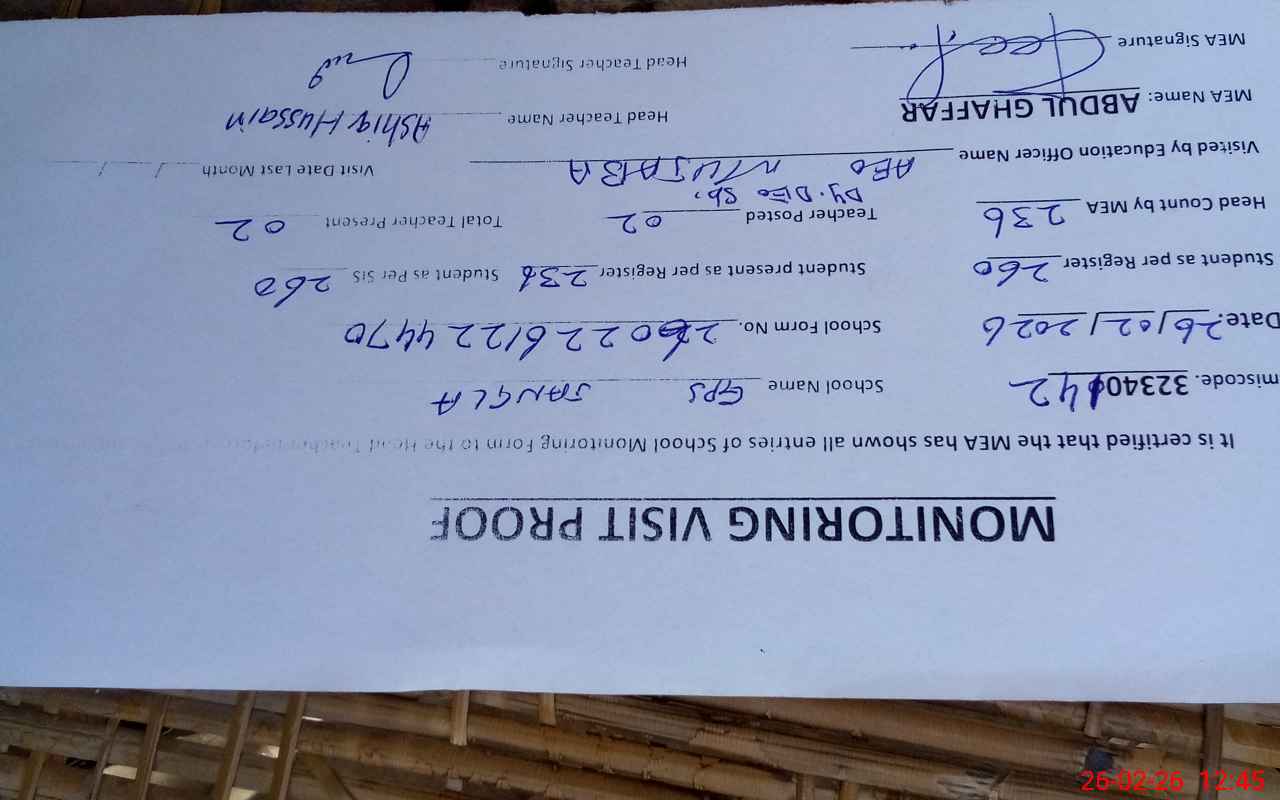 MONITORING VISIT PROOF
It is certified that the MEA has shown all entries of School Monitoring Form to the Head Teacher
miscode. 32340142 School Name GPS JANGLA
Date: 26/02/2026 School Form No. 260226122 4470
Student as per Register 260 Student present as per Register 236 Student as Per SIS 260
Head Count by MEA 236 Teacher Posted 02 Total Teacher Present 02
Dy. DEO Sb,
Visited by Education Officer Name AEO Visit Date Last Month / /
MEA Name: ABDUL GHAFFAR Head Teacher Name Ashiq Hussain
MEA Signature Head Teacher Signature
26-02-26 12:45